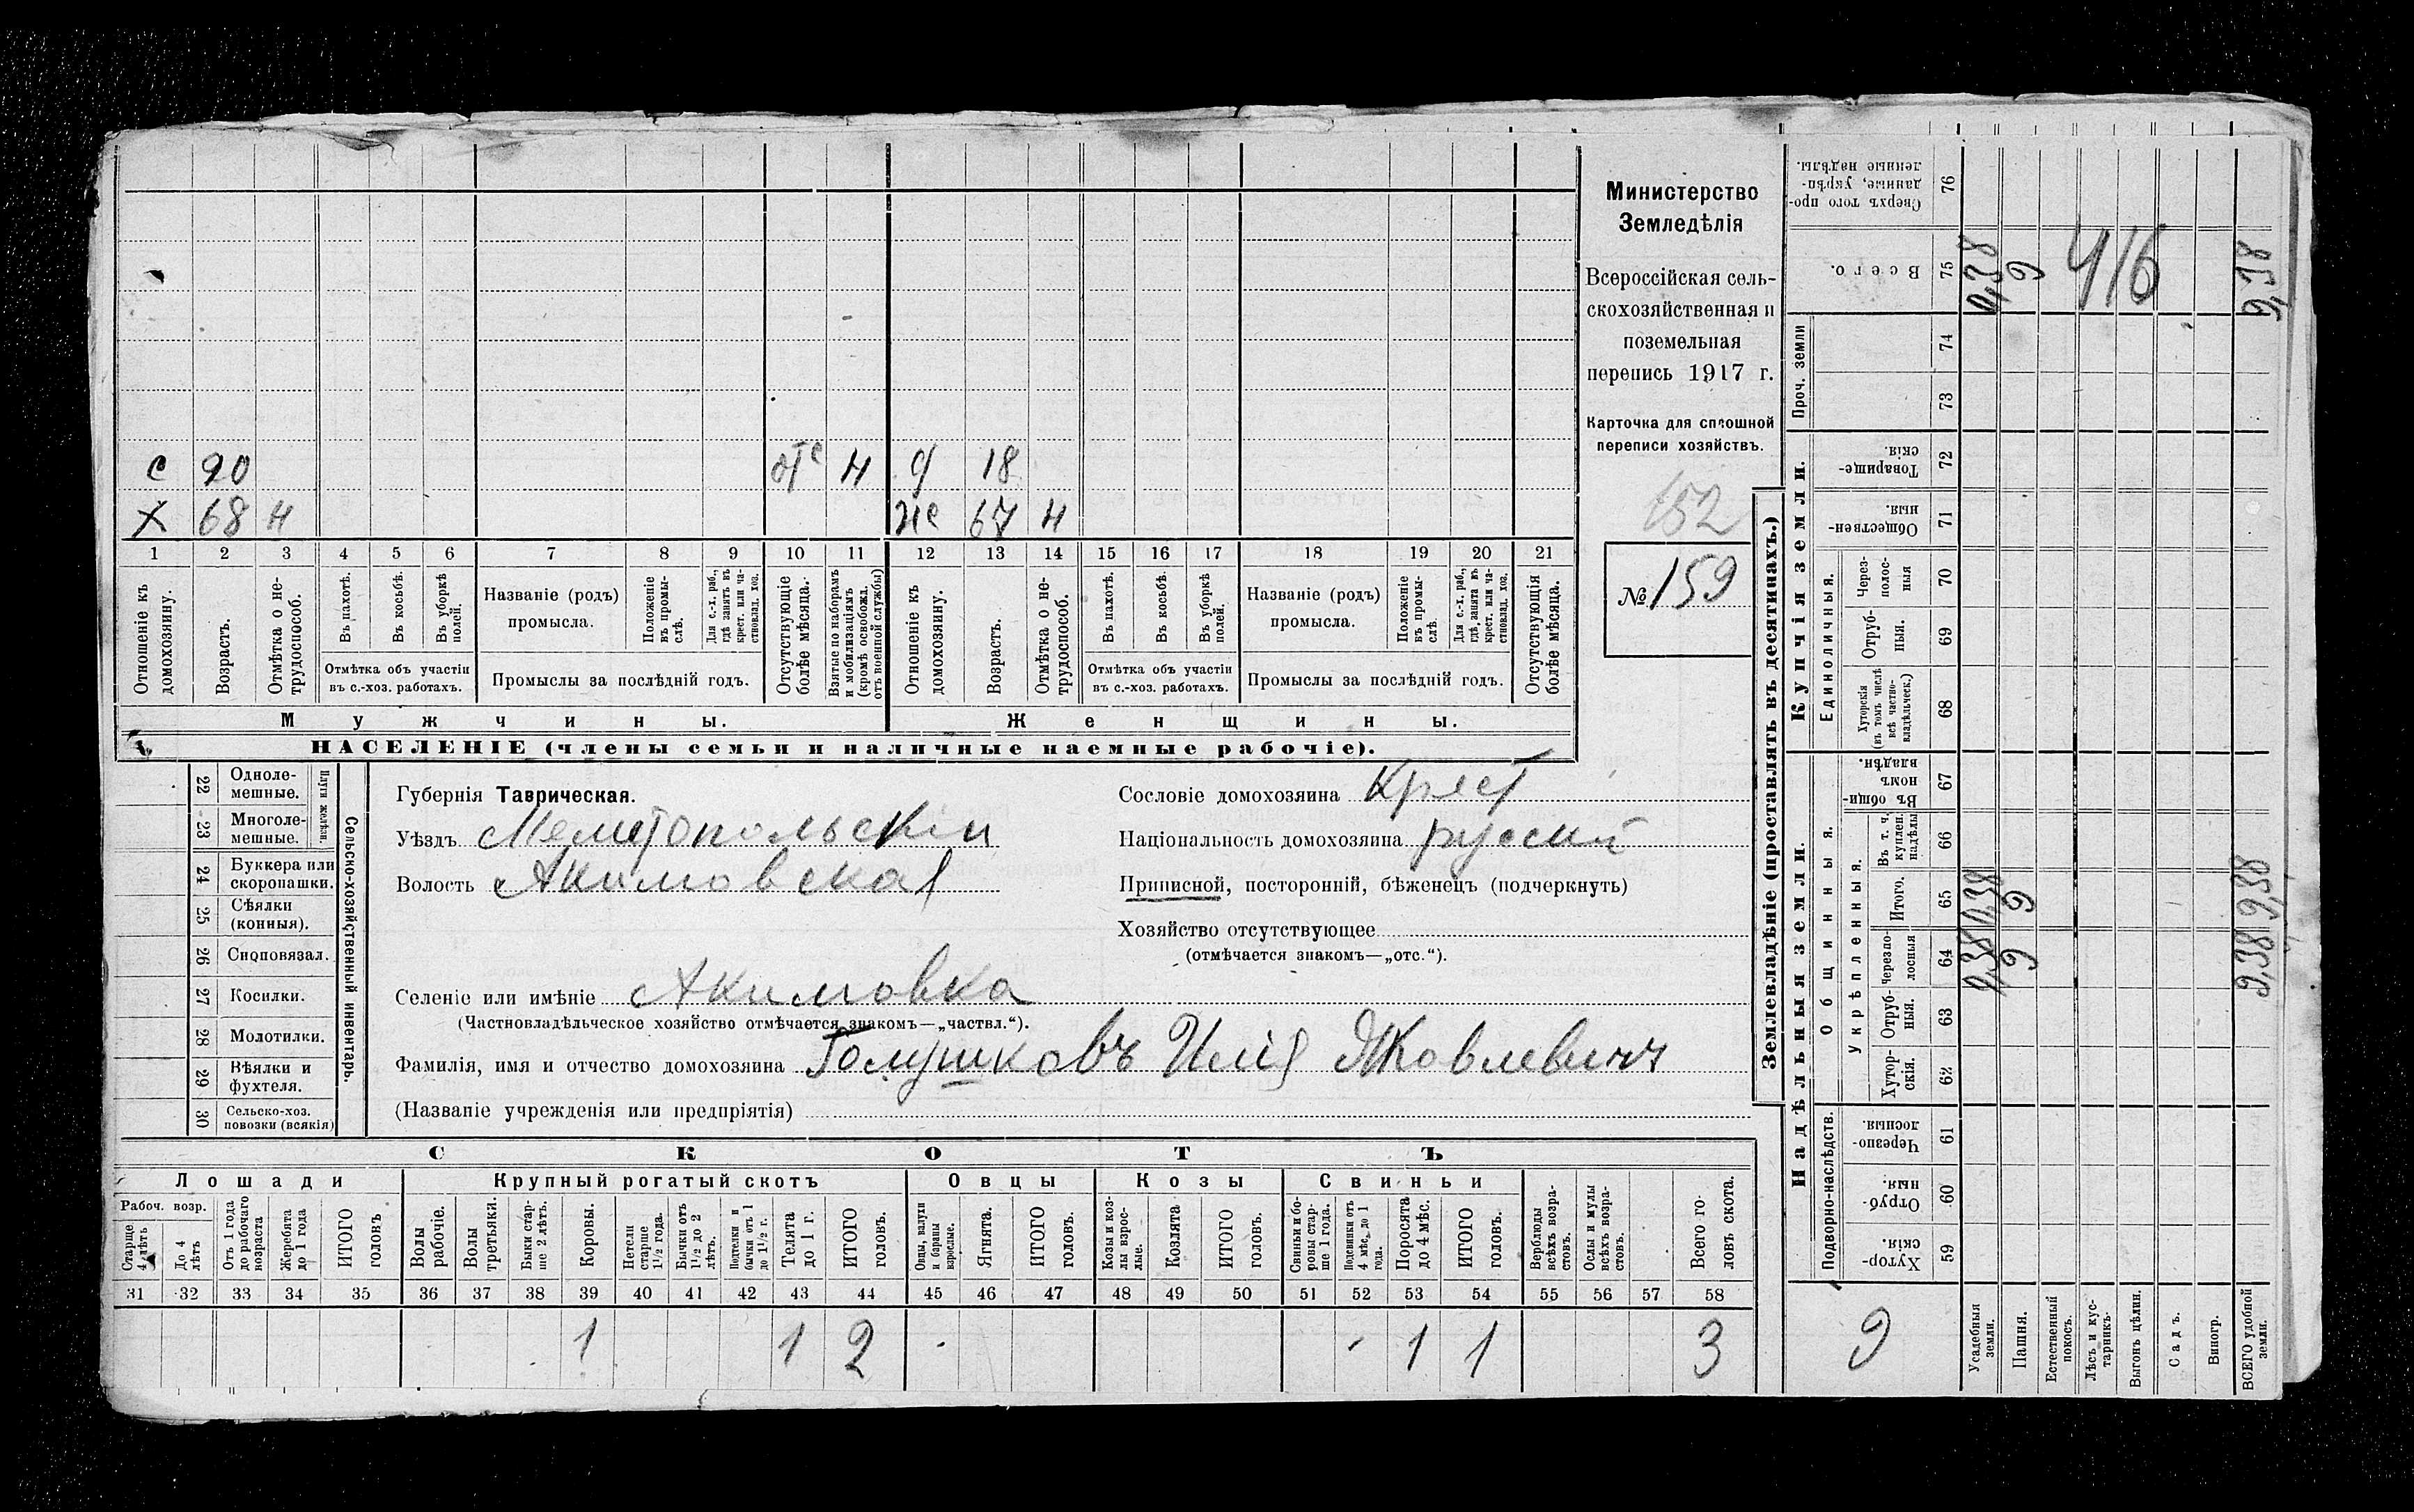 с 20 отс н д 18
х 68 н же 67 н
1 2 3 4 5 6 7 8 9 10 11 12 13 14 15 16 17 18 19 20 21
Отношеніе къ домохозяину.
Возрастъ.
Отмѣтка о не-трудоспособ.
Въ пахотѣ.
Въ косьбѣ.
Въ уборкѣ полей.
Отмѣтка объ участіи
въ с.-хоз. работахъ.
Названіе (родъ)
промысла.
Положеніе въ промы-слѣ.
Для с.-х. раб., гдѣ занятъ въ крест. или ча-стновлад. хоз.
Промыслы за послѣдній годъ.
Отсутствующіе болѣе мѣсяца.
Взятые по наборамъ и мобилизаціямъ (кромѣ освобожд. отъ военной службы)
Отношеніе къ домохозяину.
Возрастъ.
Отмѣтка о не-трудоспособ.
Въ пахотѣ.
Въ косьбѣ.
Въ уборкѣ полей.
Отмѣтка объ участіи
въ с.-хоз. работахъ.
Названіе (родъ)
промысла.
Положеніе въ промы-слѣ.
Для с.-х. раб., гдѣ занята въ крест. или ча-стновлад. хоз.
Промыслы за послѣдній годъ.
Отсутствующія болѣе мѣсяца.
Мужчины.
Женщины.
НАСЕЛЕНІЕ (члены семьи и наличные наемные рабочіе).
Министерство
Земледѣлія
Всероссійская сель-
скохозяйственная и
поземельная
перепись 1917 г.
Карточка для сплошной
переписи хозяйствъ.
152
№ 159
22 Одноле-
мешные.
23 Многоле-
мешные.
Плуги желѣзн.
24 Буккера или
скоропашки.
25 Сѣялки
(конныя).
26 Сноповязал.
27 Косилки.
28 Молотилки.
29 Вѣялки и
фухтеля.
30 Сельско-хоз.
повозки (всякія)
Сельско-хозяйственный инвентарь.
Губернія Таврическая.
Уѣздъ Мелитопольскій
Волость Акимовская
Селеніе или имѣніе Акимовка
(Частновладѣльческое хозяйство отмѣчается знакомъ—„частвл.“).
Фамилія, имя и отчество домохозяина Голушковъ Илія Яковлевичъ
(Названіе учрежденія или предпріятія)
Сословіе домохозяина Крест
Національность домохозяина русскій
Приписной, посторонній, бѣженецъ (подчеркнуть)
Хозяйство отсутствующее
(отмѣчается знакомъ—„отс.“).
СКОТЪ
Лошади
Крупный рогатый скотъ
Овцы
Козы
Свиньи
Рабоч. возр.
Старше 4 лѣтъ
До 4 лѣтъ
Отъ 1 года до рабочаго возраста
Жеребята до 1 года
ИТОГО головъ
Волы рабочіе.
Волы третьяки.
Быки стар-ше 2 лѣтъ.
Коровы.
Нетели старше 1½ года.
Бычки отъ 1½ до 2 лѣтъ.
Подтелки и бычки отъ 1 до 1½ г.
Телята до 1 г.
ИТОГО головъ.
Овцы, валухи и бараны взрослые.
Ягнята.
ИТОГО головъ.
Козы и коз-лы взрос-лые.
Козлята
ИТОГО головъ.
Свиньи и бо-ровы стар-ше 1 года.
Подсвинки отъ 4 мѣс. до 1 года.
Поросята до 4 мѣс.
ИТОГО головъ.
Верблюды всѣхъ возра-стовъ.
Ослы и мулы всѣхъ возра-стовъ.
Всего го-ловъ скота.
31 32 33 34 35 36 37 38 39 40 41 42 43 44 45 46 47 48 49 50 51 52 53 54 55 56 57 58
1 1 2 1 1 3
Землевладѣніе (проставлять въ десятинахъ.)
Купчія земли.
Надѣльныя земли.
Сверхъ того про-данные, укрѣп-ленные надѣлы. 76
Всего. 75 0,38 9 416 9,38
Проч. земли
74
73
Товарище-скія. 72
Обществен-ныя. 71
Единоличныя.
Через-полос-ныя 70
Отруб-ныя. 69
Хуторскія (въ томъ числѣ всѣ частно-владѣльческ.) 68
Общинныя.
Въ общин-номъ владѣн. 67
Укрѣпленныя.
Въ т. ч. куплен. надѣлы 66
Итого. 65 0,38 9 9,38
Черезпо-лосныя 64 0,38 9 9,38
Отруб-ныя. 63
Хутор-скія. 62
Подворно-наслѣдств.
Черезпо-лосныя. 61
Отруб-ныя. 60
Хутор-скія. 59
9
Усадебныя земли.
Пашня.
Естественный покосъ.
Лѣсъ и кус-тарникъ.
Выгонъ цѣлин.
Садъ.
Виногр.
ВСЕГО удобной земли.